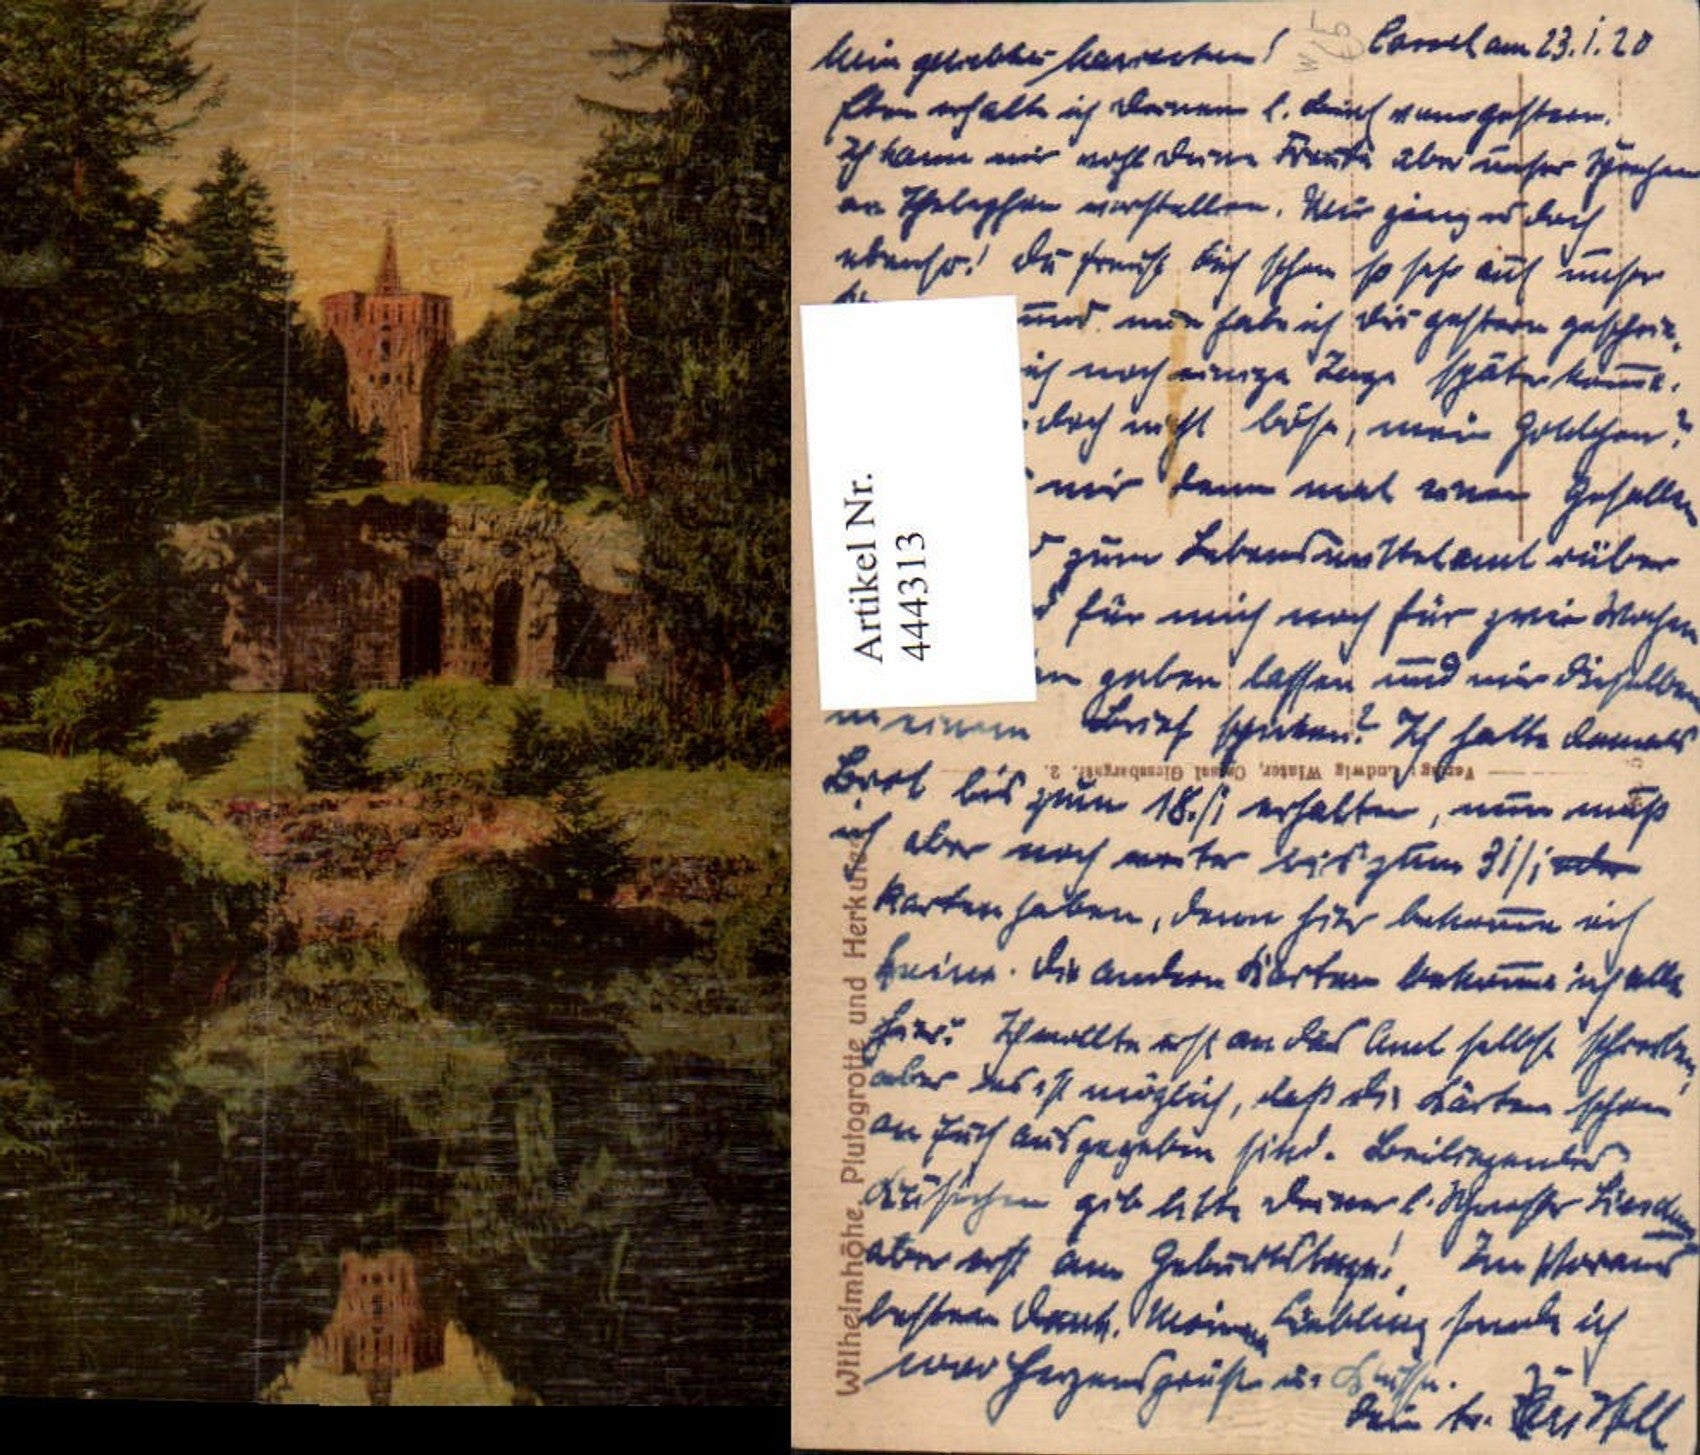 Cassel am 23.1.20
Mein geliebtes
Eben erhalte ich Deinen l. Brief von gestern.
Ich kann mir wohl Deine Freude über unser Sprechen
am Thelephon vorstellen. Mir ging es doch
ebenso! Du freust Dich schon so sehr auf unser
und nun habe ich Dir gestern geschrie-
ich noch einige Tage später komme.
doch nicht böse, mein Goldchen?
mir denn mal einen Gefallen
zum Lebensmittelamt rüber
für mich noch für zwei Wochen
geben lassen und mir dieselben
in einem Brief schicken? Ich hatte damals
Brot bis zum 18./1 erhalten, nun muß
ich aber noch weiter bis zum 31/1
Karten haben, denn hier bekomme ich
keine. Die andern Karten bekomme ich alle
hier. Ich wollte erst an das Amt selbst schreiben,
aber es ist möglich, daß die Karten schon
an Euch ausgegeben sind. Beiliegendes
gib bitte Deiner l. Schwester
aber erst am Geburtstage! Im Voraus
besten Dank. Meinem Liebling sende ich
Herzensgrüße u. Küsse.
Dein tr.
Artikel Nr.
444313
Verlag: Ludwig Winter, Cassel Giessbergstr. 2.
Wilhelmshöhe, Plutogrotte und Herkules